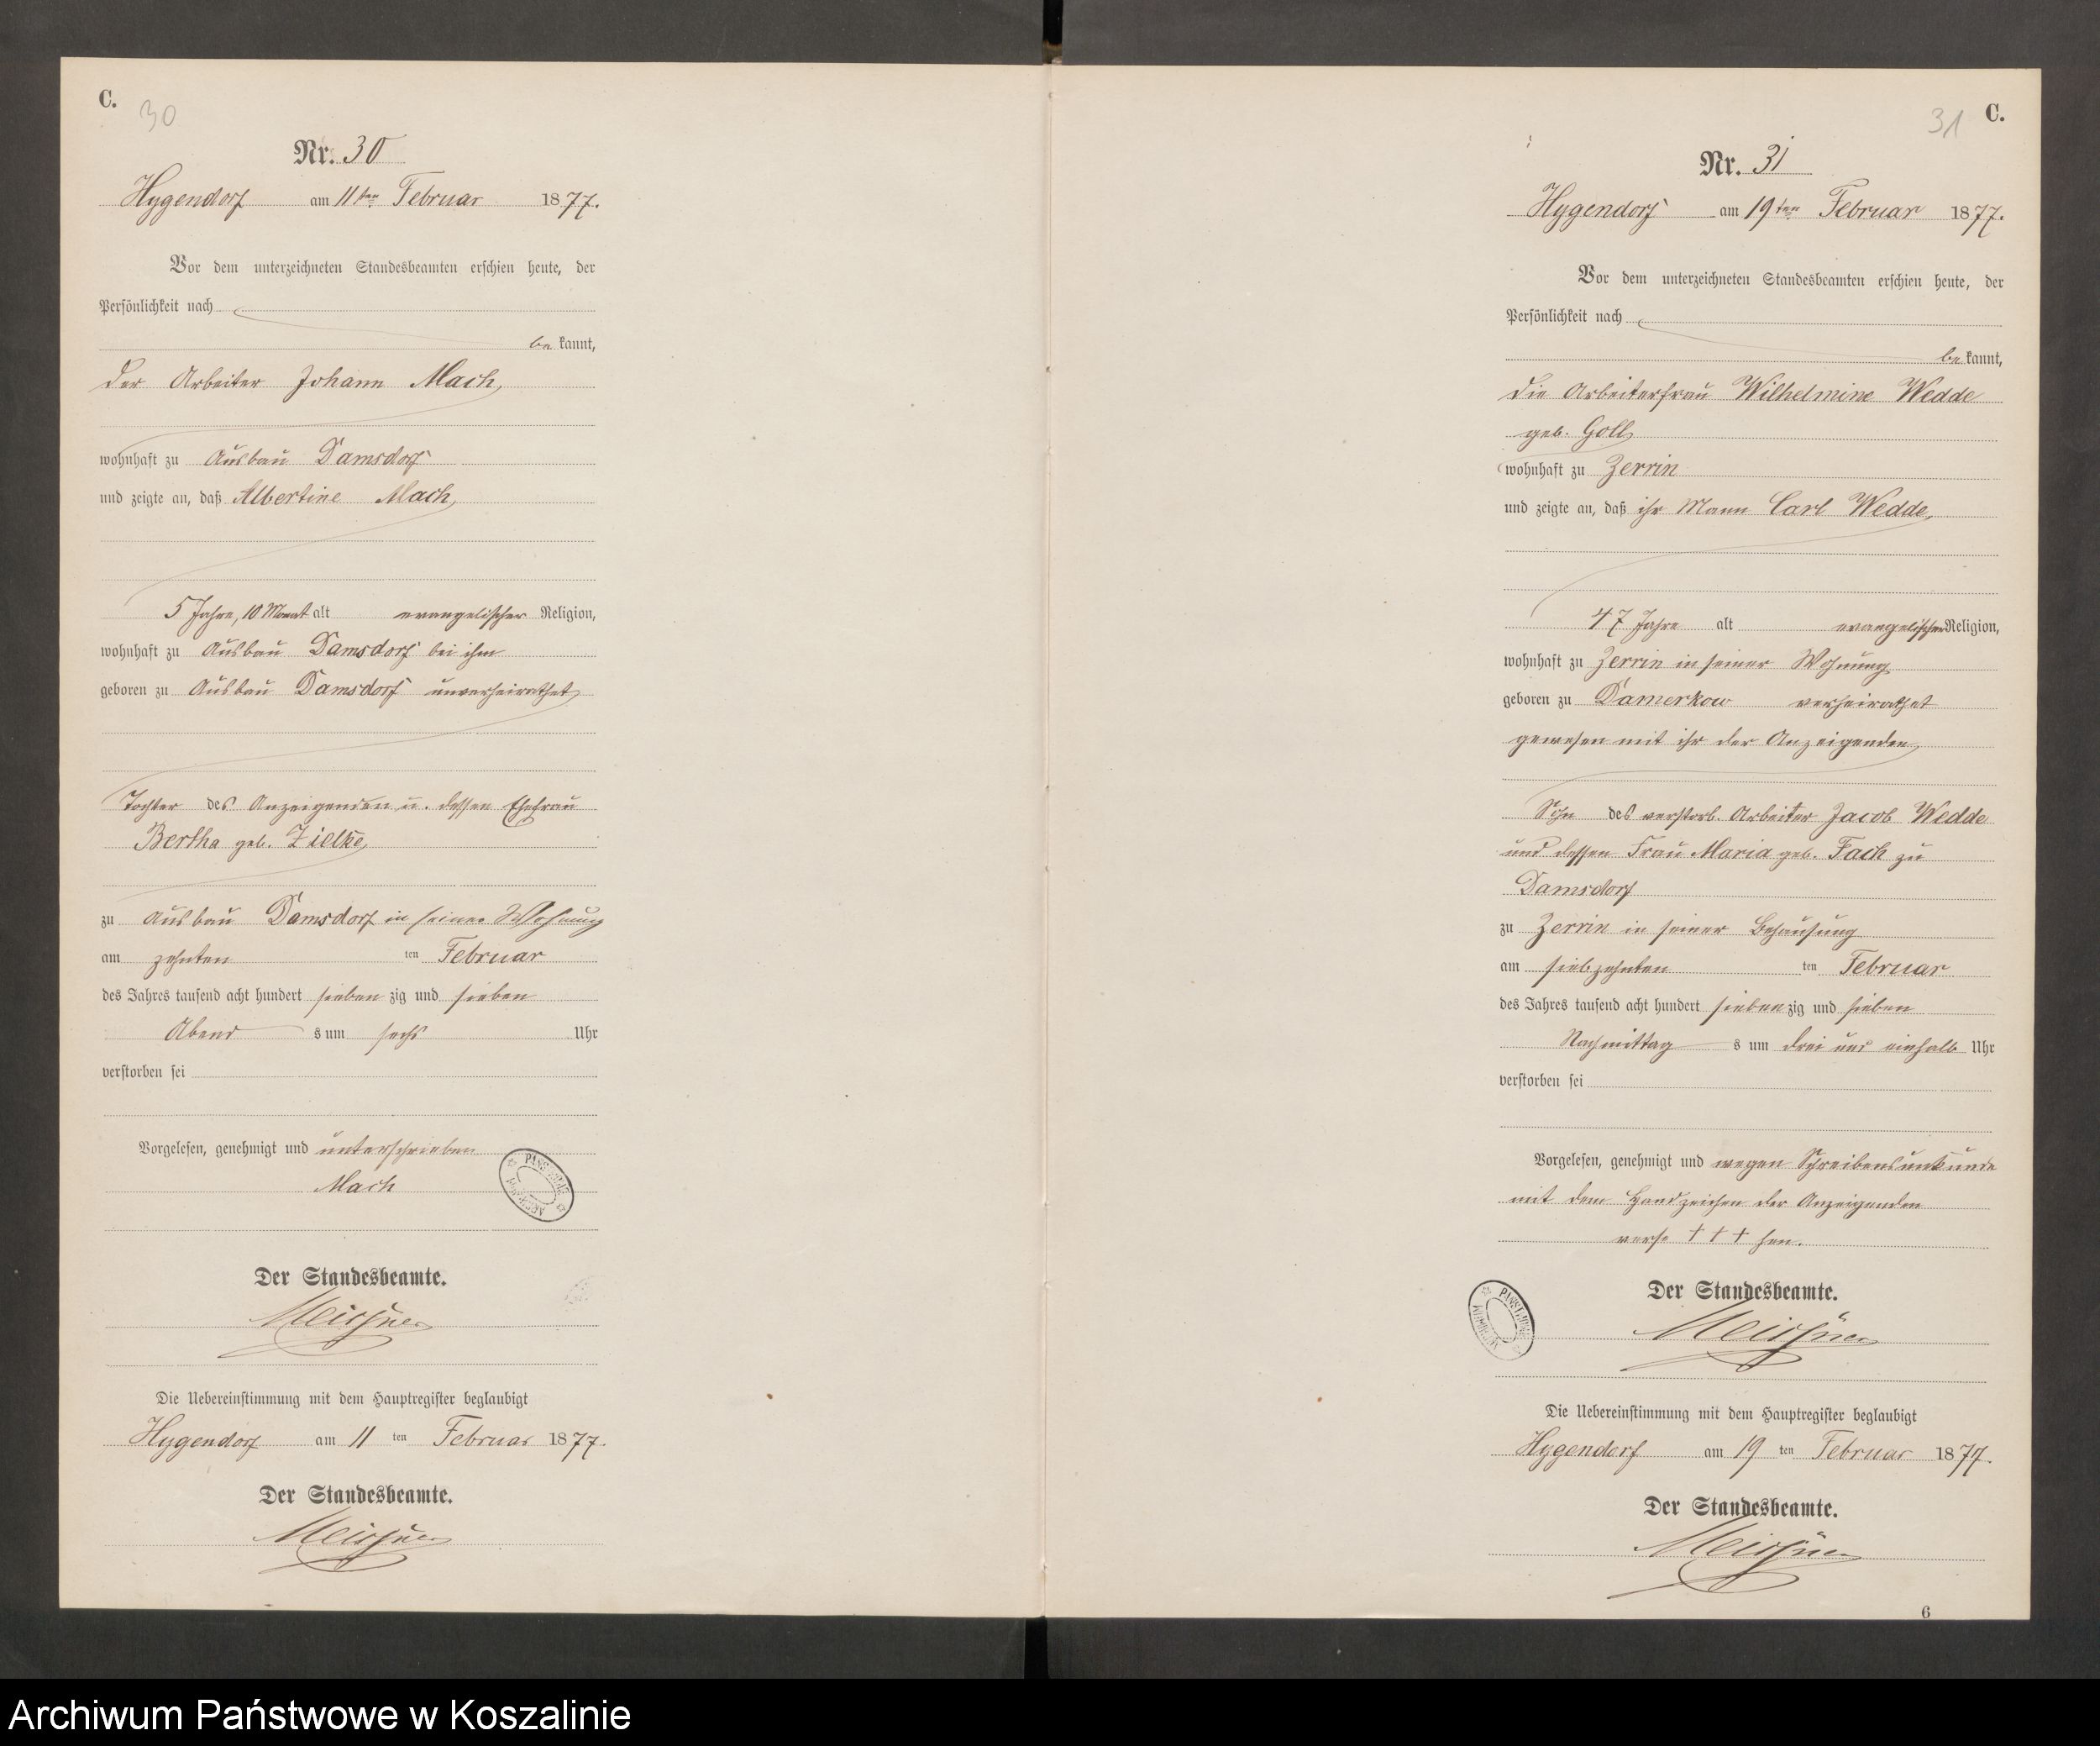 C.
30
Nr. 30
Hygendorf am 11ten Februar 1877.
Vor dem unterzeichneten Standesbeamten erschien heute, der
Persönlichkeit nach
be kannt,
der Arbeiter Johann Mach,
wohnhaft zu Ausbau Damsdorf
und zeigte an, daß Albertine Mach,
5 Jahre, 10 Monat alt evangelischer Religion,
wohnhaft zu Ausbau Damsdorf bei ihm
geboren zu Ausbau Damsdorf unverheirathet,
Tochter des Anzeigenden u. dessen Ehefrau
Bertha geb. Zielke,
zu Ausbau Damsdorf in seiner Wohnung
am zehnten ten Februar
des Jahres tausend acht hundert sieben zig und sieben
Abend s um sechs Uhr
verstorben sei
Vorgelesen, genehmigt und unterschrieben
Mach
Der Standesbeamte.
Die Uebereinstimmung mit dem Hauptregister beglaubigt
Hygendorf am 11 ten Februar 1877.
Der Standesbeamte.
31
C.
Nr. 31
Hygendorf am 19ten Februar 1877.
Vor dem unterzeichneten Standesbeamten erschien heute, der
Persönlichkeit nach
be kannt,
die Arbeiterfrau Wilhelmine Wedde
geb. Goll,
wohnhaft zu Zerrin
und zeigte an, daß ihr Mann Carl Wedde,
47 Jahre alt evangelischer Religion,
wohnhaft zu Zerrin in seiner Wohnung
geboren zu Damerkow verheirathet
gewesen mit ihr der Anzeigenden,
Sohn des verstorb. Arbeiter Jacob Wedde
und dessen Frau Maria geb. Fach zu
Damsdorf
zu Zerrin in seiner Behausung
am siebzehnten ten Februar
des Jahres tausend acht hundert sieben zig und sieben
Nachmittag s um drei und einhalb Uhr
verstorben sei
Vorgelesen, genehmigt und wegen Schreibensunkunde
mit dem Handzeichen der Anzeigenden
verse +++ hen.
Der Standesbeamte.
Die Uebereinstimmung mit dem Hauptregister beglaubigt
Hygendorf am 19 ten Februar 1877.
Der Standesbeamte.
6
Archiwum Państwowe w Koszalinie